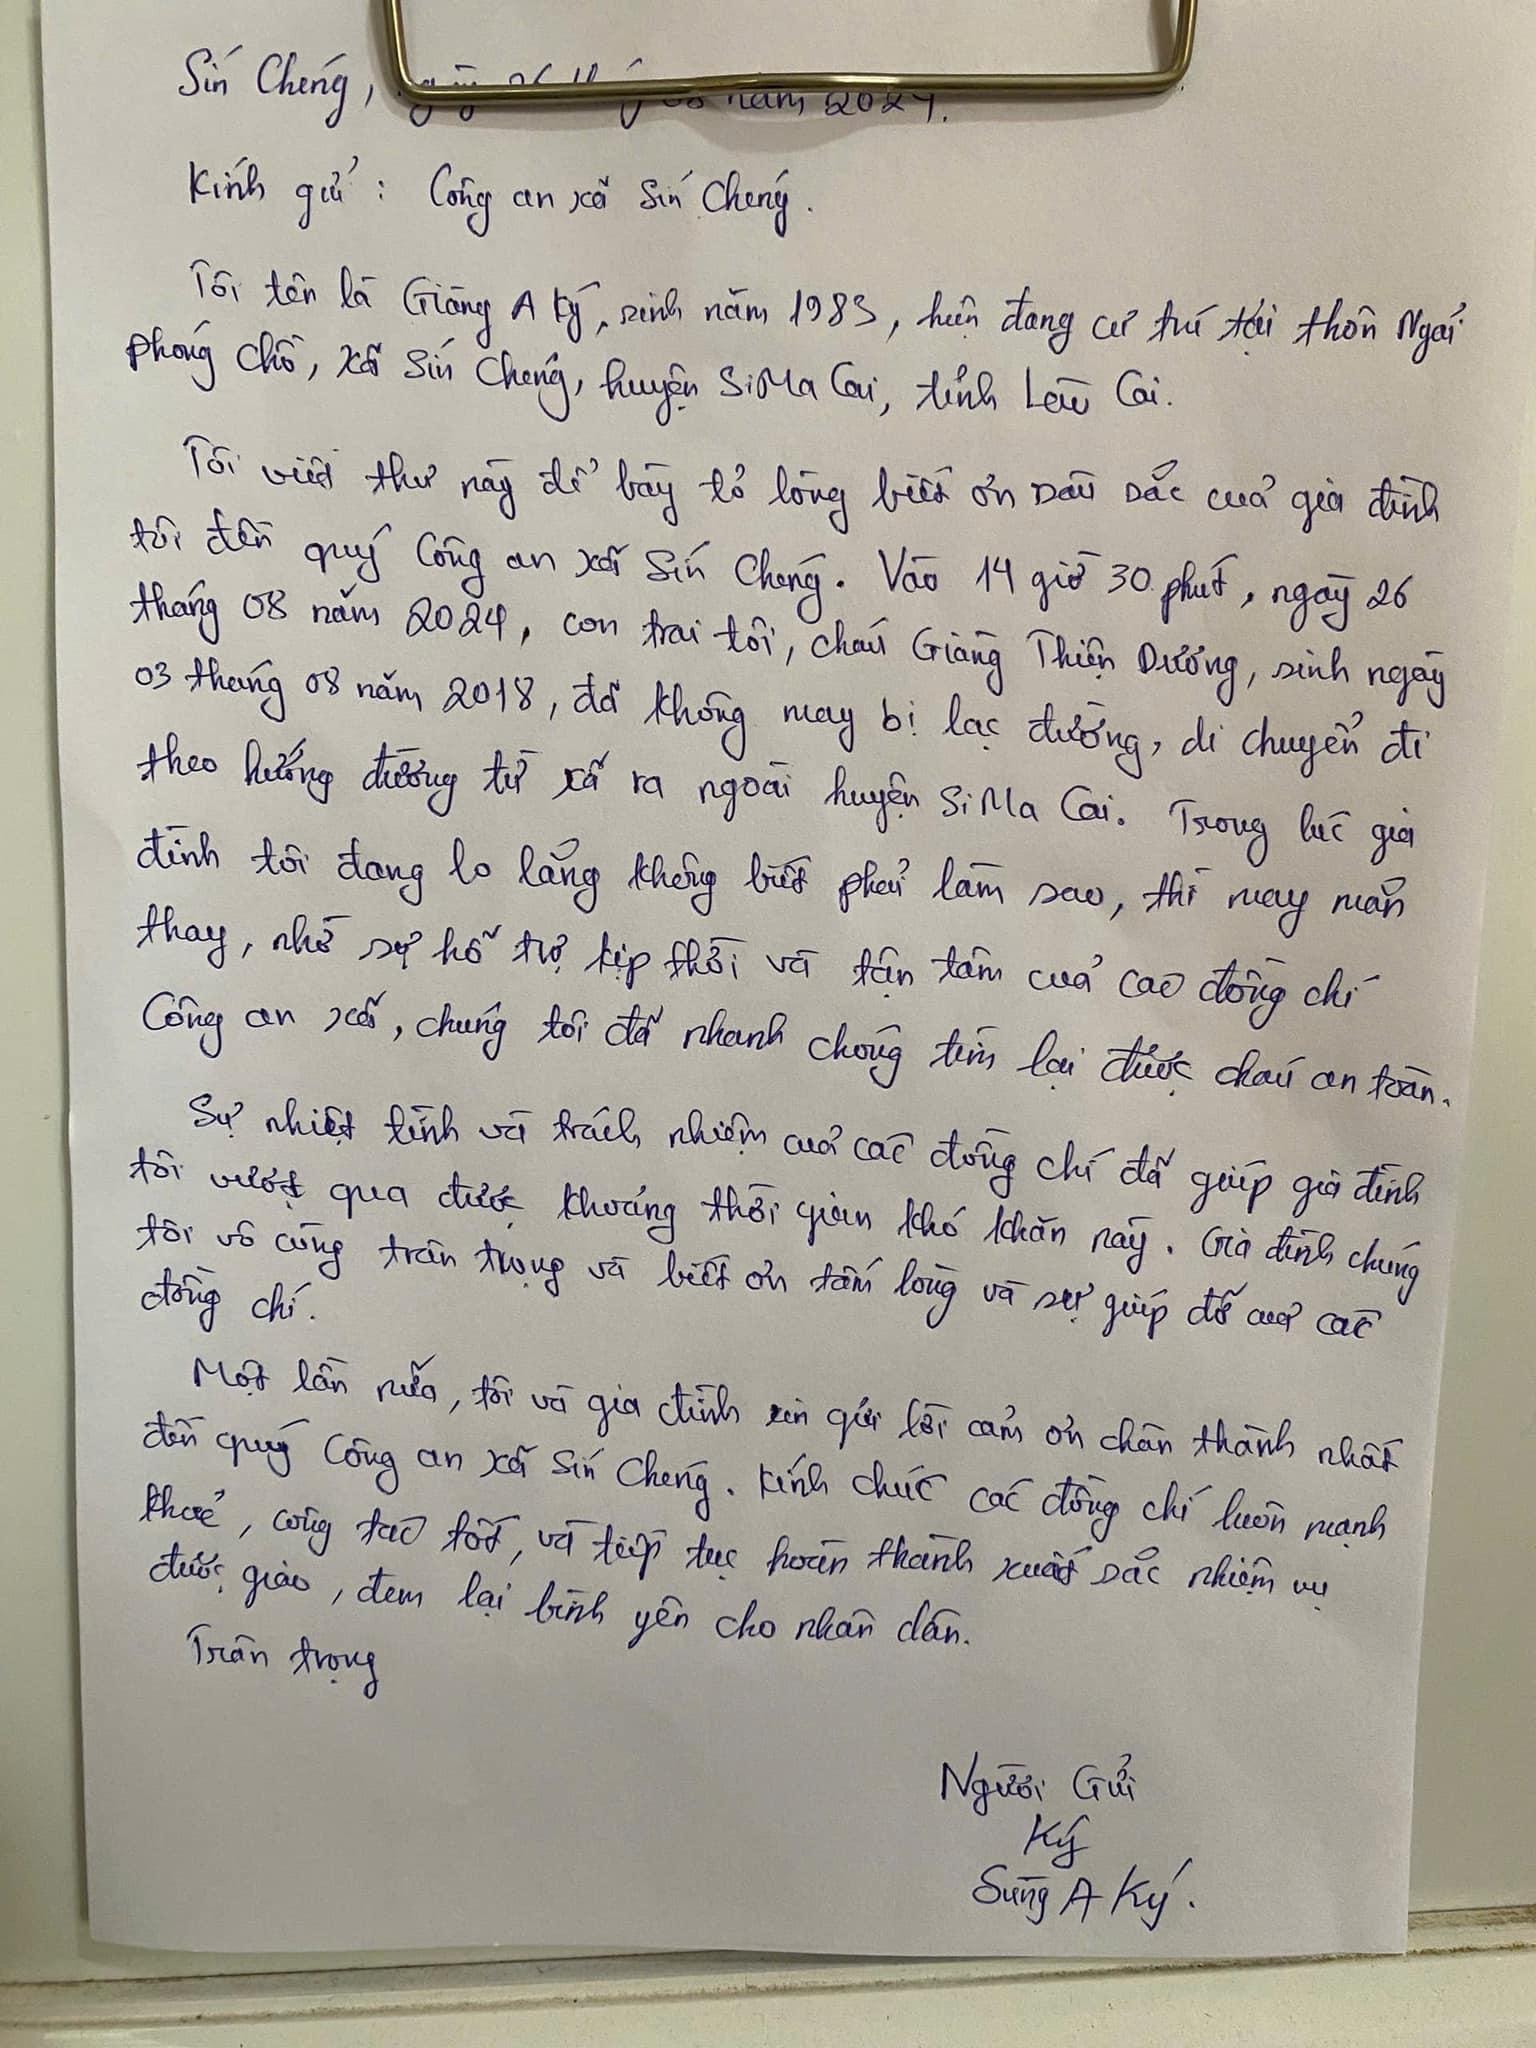 Sín Chéng, ngày 26 tháng 08 năm 2024.
Kính gửi : Công an xã Sín Chéng.
Tôi tên là Giàng A Ký, sinh năm 1983, hiện đang cư trú tại thôn Ngải
Phóng Chồ, xã Sín Chéng, huyện SiMa Cai, tỉnh Lào Cai.
Tôi viết thư này để bày tỏ lòng biết ơn sâu sắc của gia đình
tôi đến quý Công an xã Sín Chéng. Vào 14 giờ 30 phút, ngày 26
tháng 08 năm 2024, con trai tôi, cháu Giàng Thiện Dương, sinh ngày
03 tháng 08 năm 2018, đã không may bị lạc đường, di chuyển đi
theo hướng đường từ xã ra ngoài huyện SiMa Cai. Trong lúc gia
đình tôi đang lo lắng không biết phải làm sao, thì may mắn
thay, nhờ sự hỗ trợ kịp thời và tận tâm của các đồng chí
Công an xã, chúng tôi đã nhanh chóng tìm lại được cháu an toàn.
Sự nhiệt tình và trách nhiệm của các đồng chí đã giúp gia đình
tôi vượt qua được khoảng thời gian khó khăn này. Gia đình chúng
tôi vô cùng trân trọng và biết ơn tấm lòng và sự giúp đỡ của các
đồng chí.
Một lần nữa, tôi và gia đình xin gửi lời cảm ơn chân thành nhất
đến quý Công an xã Sín Chéng. Kính chúc các đồng chí luôn mạnh
khoẻ, công tác tốt, và tiếp tục hoàn thành xuất sắc nhiệm vụ
được giao, đem lại bình yên cho nhân dân.
Trân trọng
Người Gửi
Ký
Sùng A Ký.